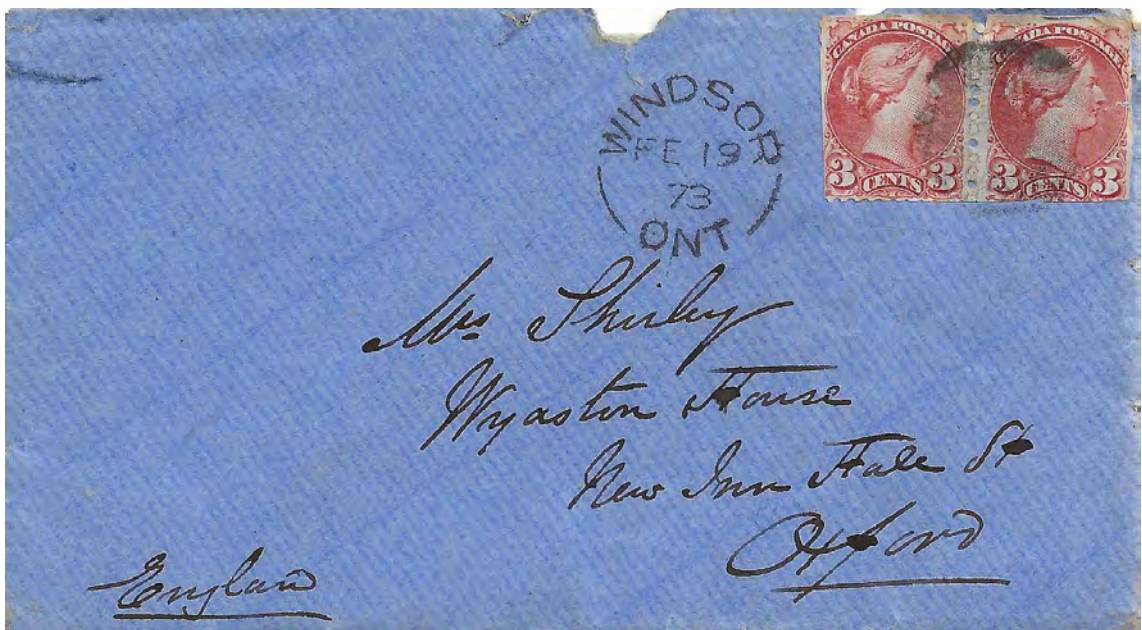 CANADA POSTAGE
3 CENTS 3
CANADA POSTAGE
3 CENTS 3
WINDSOR
FE 19
73
ONT
Mrs Shirley
Wyaston House
New Inn Hale St
Oxford
England